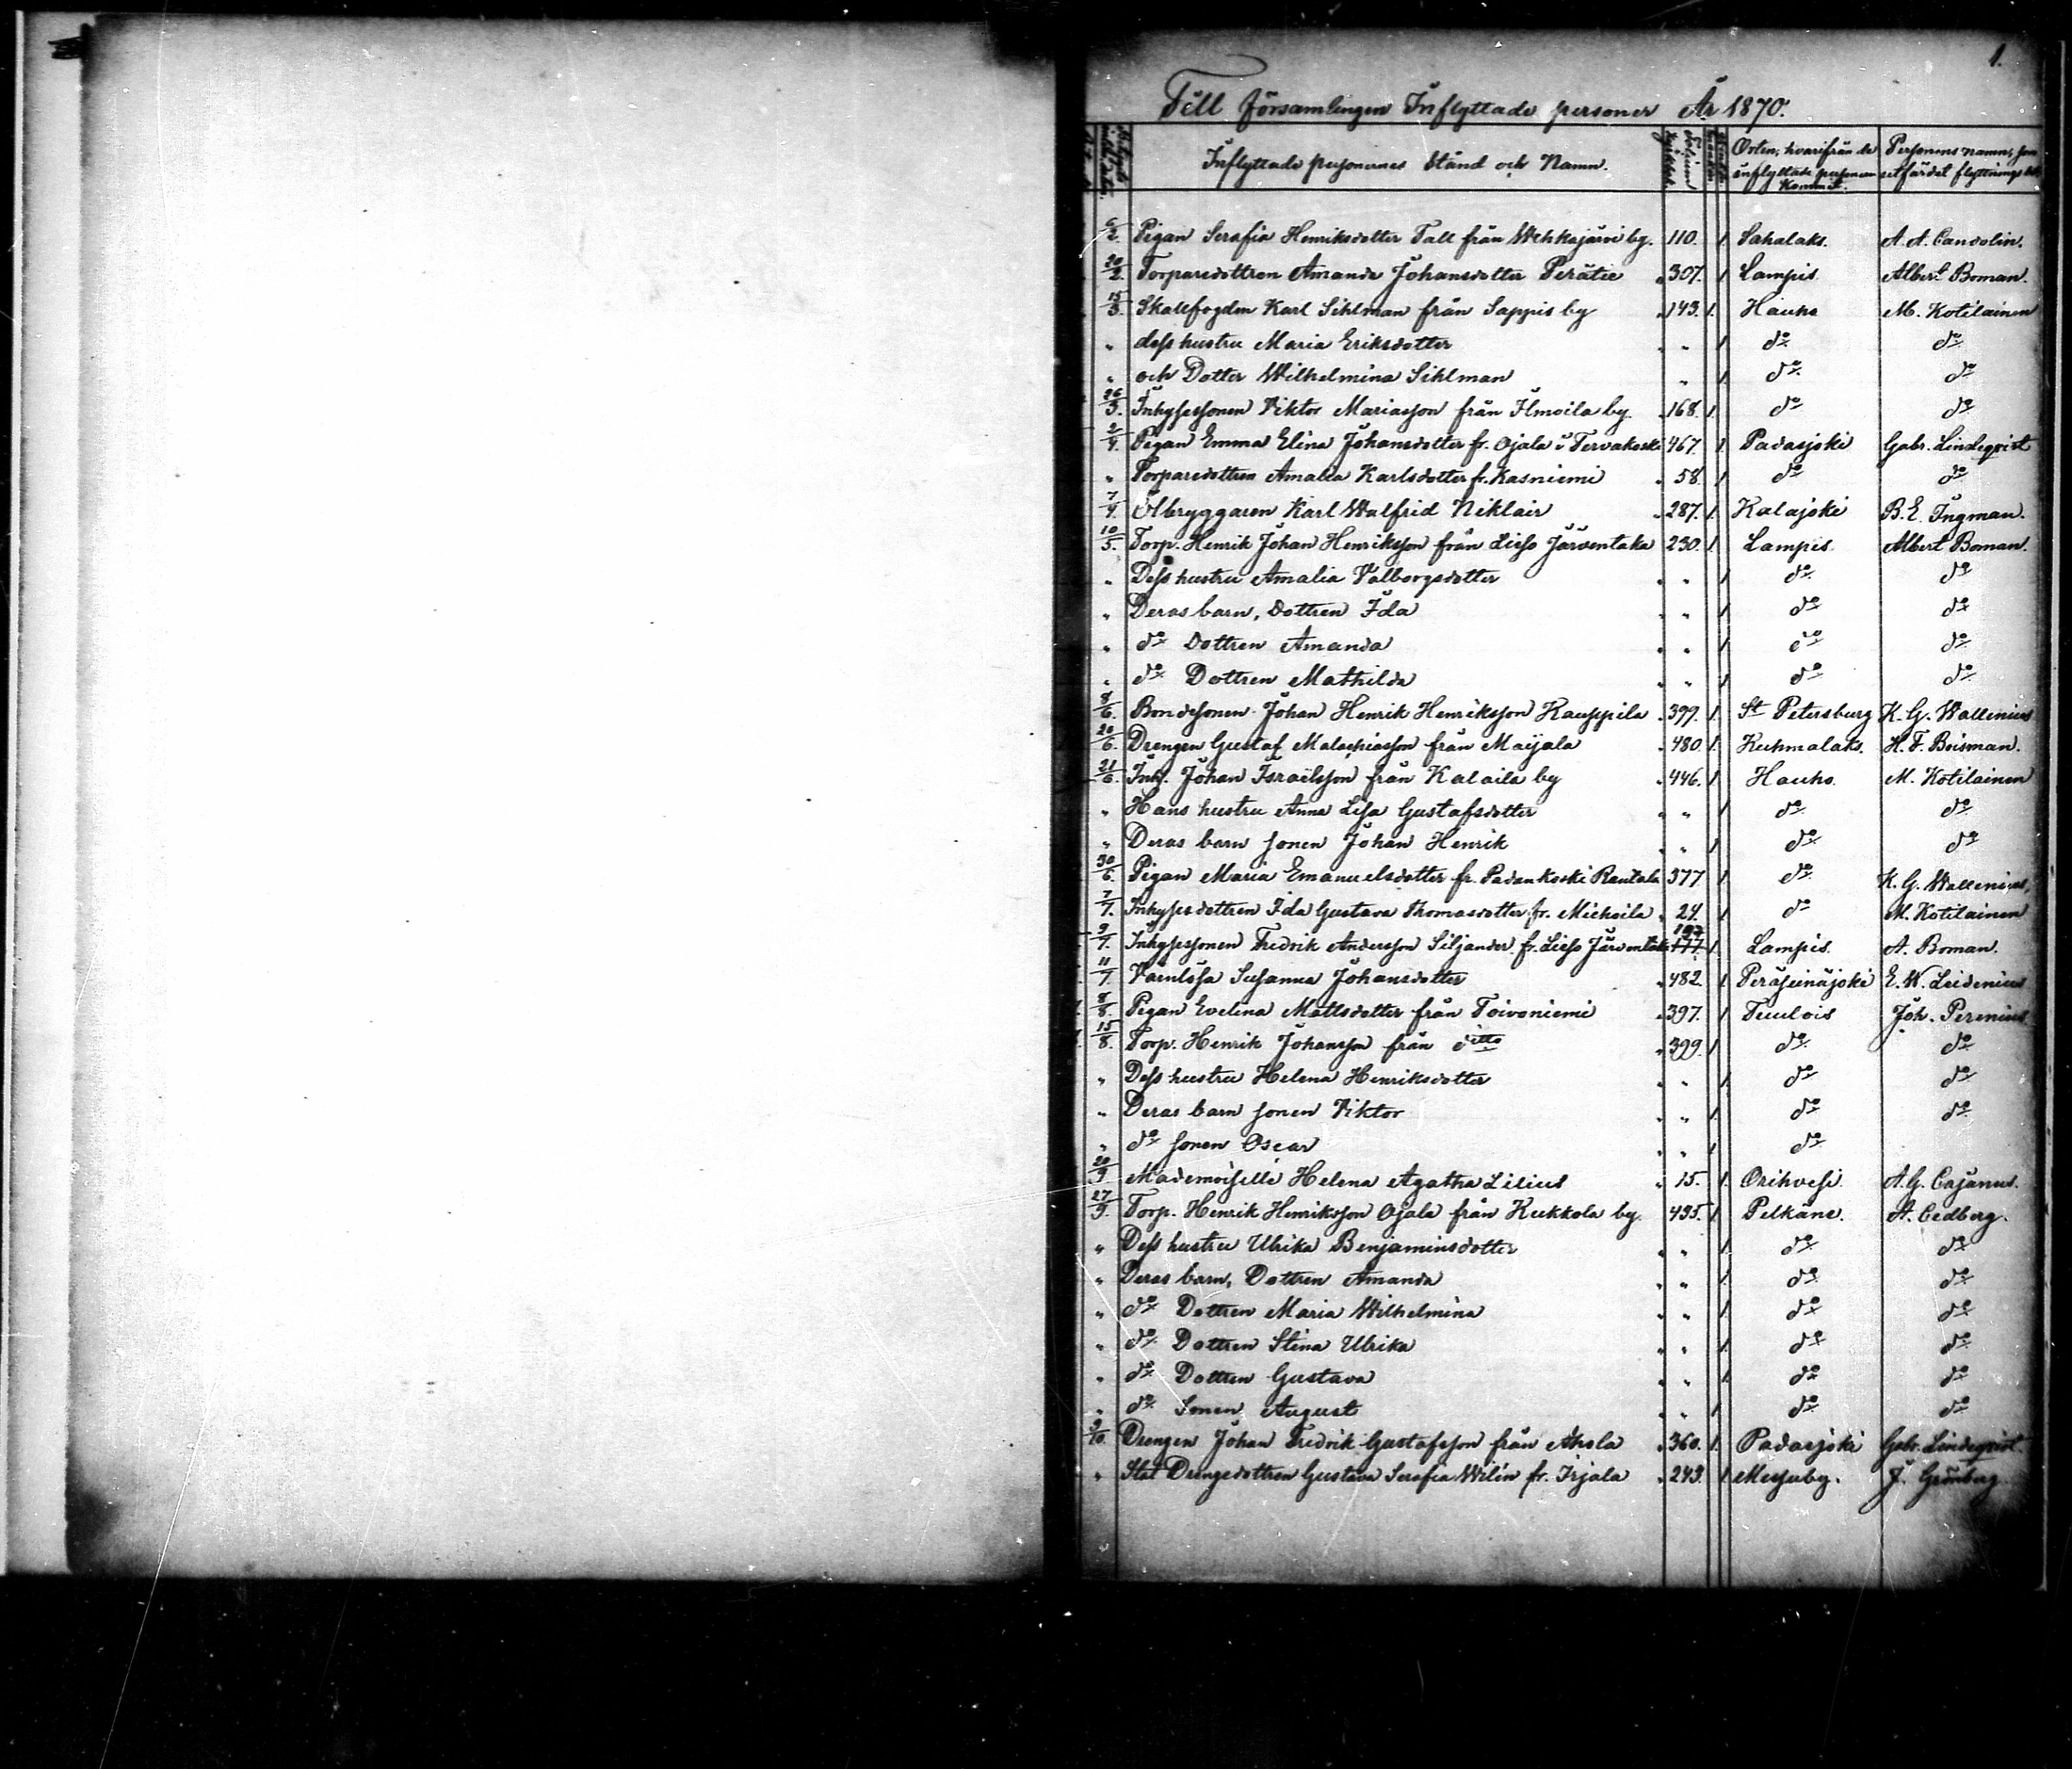 1.
Till församlingen Inflyttade personer År 1870.
Inflyttade personernes Stånd och Namn. Orten, hvarifrån de inflyttade personer kommit. Personens namn, som utfärdat flyttnings
6/2. Pigan Serafia Henriksdotter Tall från Wehkajärvi by. 110. 1. Sahalaks. A. A. Candolin.
20/2. Torparedottren Amanda Johansdotter Perätie " 307. 1 Lampis. Albert Boman.
15/3. Skallfogden Karl Sihlman från Sappis by " 143. 1. Hauho M. Kotilainen
" dess hustru Maria Eriksdotter " " 1 do do
" och Dotter Wilhelmina Sihlman " 1. do do
26/3. Inhysessonen Viktor Mariasson från Ilmoila by " 168. 1. do do
2/4. Pigan Emma Elina Johansdotter fr. Ojala i Tervakoski 467. 1. Padasjoki Gabr. Lindeqvist
" Torparedottren Amalia Karlsdotter fr. Kasniemi " 58. 1 do do
7/4. Ölbryggaren Karl Walfrid Niklair " 287. 1. Kalajoki B. E. Ingman.
10/5. Torp. Henrik Johan Henriksson från Lieso Järventaka 230. 1. Lampis. Albert Boman.
" Dess hustru Amalia Valborgsdotter " " 1 do do
" Deras barn, Dottren Ida " " 1. do do
" do Dottren Amanda " " 1 do do
" do Dottren Mathilda " " 1 do do
8/6. Bondesonen Johan Henrik Henriksson Kauppila " 399. 1. St Petersburg K. G. Wallenius
20/6. Drengen Gustaf Malachiasson från Maijala " 480 1. Kuhmalaks. H. F. Boisman.
21/6. Inh. Johan Israelsson från Kalaila by " 446. 1 Hauho. M. Kotilainen
" Hans hustru Anna Lisa Gustafsdotter " " 1 do do
" Deras barn sonen Johan Henrik " " 1 do do
30/6. Pigan Maria Emanuelsdotter fr. Padankoski Rantala 377 1. do K. G. Wallenius,
7/7. Inhysesdottren Ida Gustava Thomasdotter fr. Miehoila " 24. 1. do M. Kotilainen
9/7. Inhysessonen Fredrik Andersson Siljander fr. Lieso Järventaka 177. 1. Lampis. A. Boman.
11/7. Susanna Johansdotter " 482. 1. Peräseinäjoki E. W.
8/8. Pigan Evelina Mattsdotter från Toivoniemi " 397. 1 Tuulois Joh. Perenius
15/8. Torp. Henrik Johansson från ditto " 399. 1 do do
" Dess hustru Helena Henriksdotter " " 1. do do
" Deras barn sonen Viktor " " 1. do do
" do sonen Oscar " " 1 do
20/9. Mademoiselle Helena Agatha Lilius " 15. 1. Orihvesi. A. G. Cajanus.
27/9. Torp. Henrik Henriksson Ojala från Kukkola by. 435. 1. Pelkäne. A. Cedberg.
" Dess hustru Ulrika Benjaminsdotter " " 1. do do
" Deras barn, Dottren Amanda " " 1. do do
" do Dottren Maria Wilhelmina " " 1. do do
" do Dottren Stina Ulrika " " 1. do do
" do Dottren Gustava " " 1 do do
" do Sonen August " " 1 do do
9/10. Drengen Johan Fredrik Gustafsson från Ahola " 360. 1. Padasjoki Gabr. Lindeqvist.
" Stat Drengedottren Gustava Serafia Wilin fr. Irjala " 243. 1. Messuby. J. Grönberg